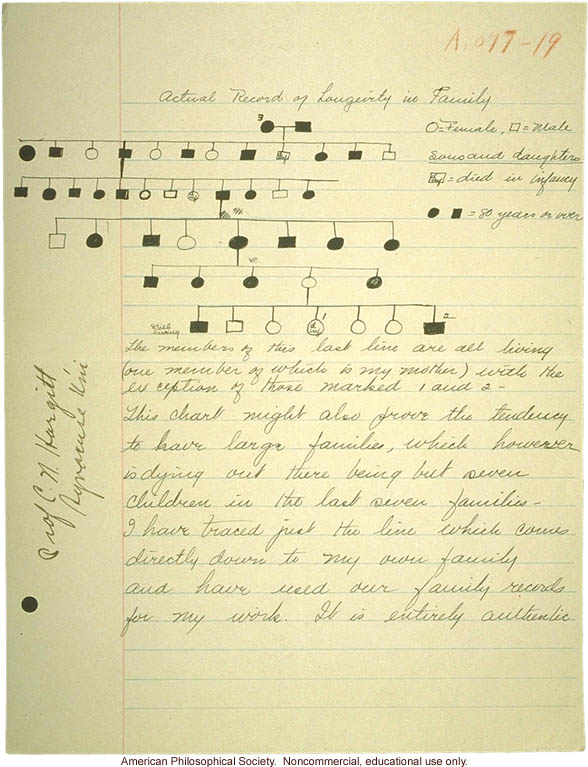 A,077-19
Actual Record of Longevity in Family
3
O=Female, □=Male
sons and daughters
= died in infancy
= 80 years or over
still
living
1
2
The members of this last line are all living
(one member of which is my mother) with the
exception of those marked 1 and 2-
This chart might also prove the tendency
to have large families, which however
is dying out there being but seven
children in the last seven families-
I have traced just the line which comes
directly down to my own family
and have used our family records
for my work. It is entirely authentic
Prof C. N. Hargitt
Syracuse Uni
American Philosophical Society. Noncommercial, educational use only.